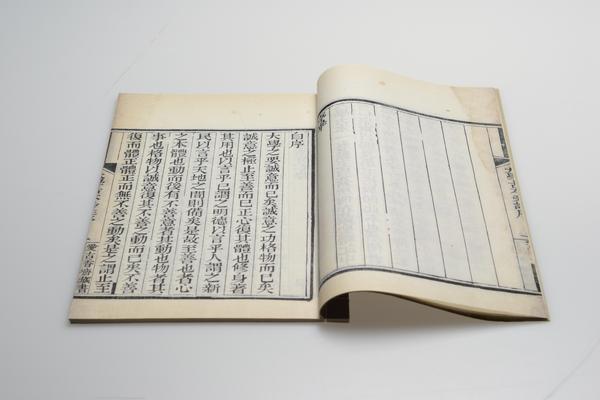 自序
大學之要誠意而已矣誠意之功格物而已矣
誠意之極止至善而已正心復其體也修身者
其用也以言乎己謂之明德以言乎人謂之新
民以言乎天地之間則備矣是故至善也者心
之本體也動而後有不善意者其動也物者其
事也格物以誠意復其不善之動而已矣不善
復而體正體正而無不善之動矣是之謂止至